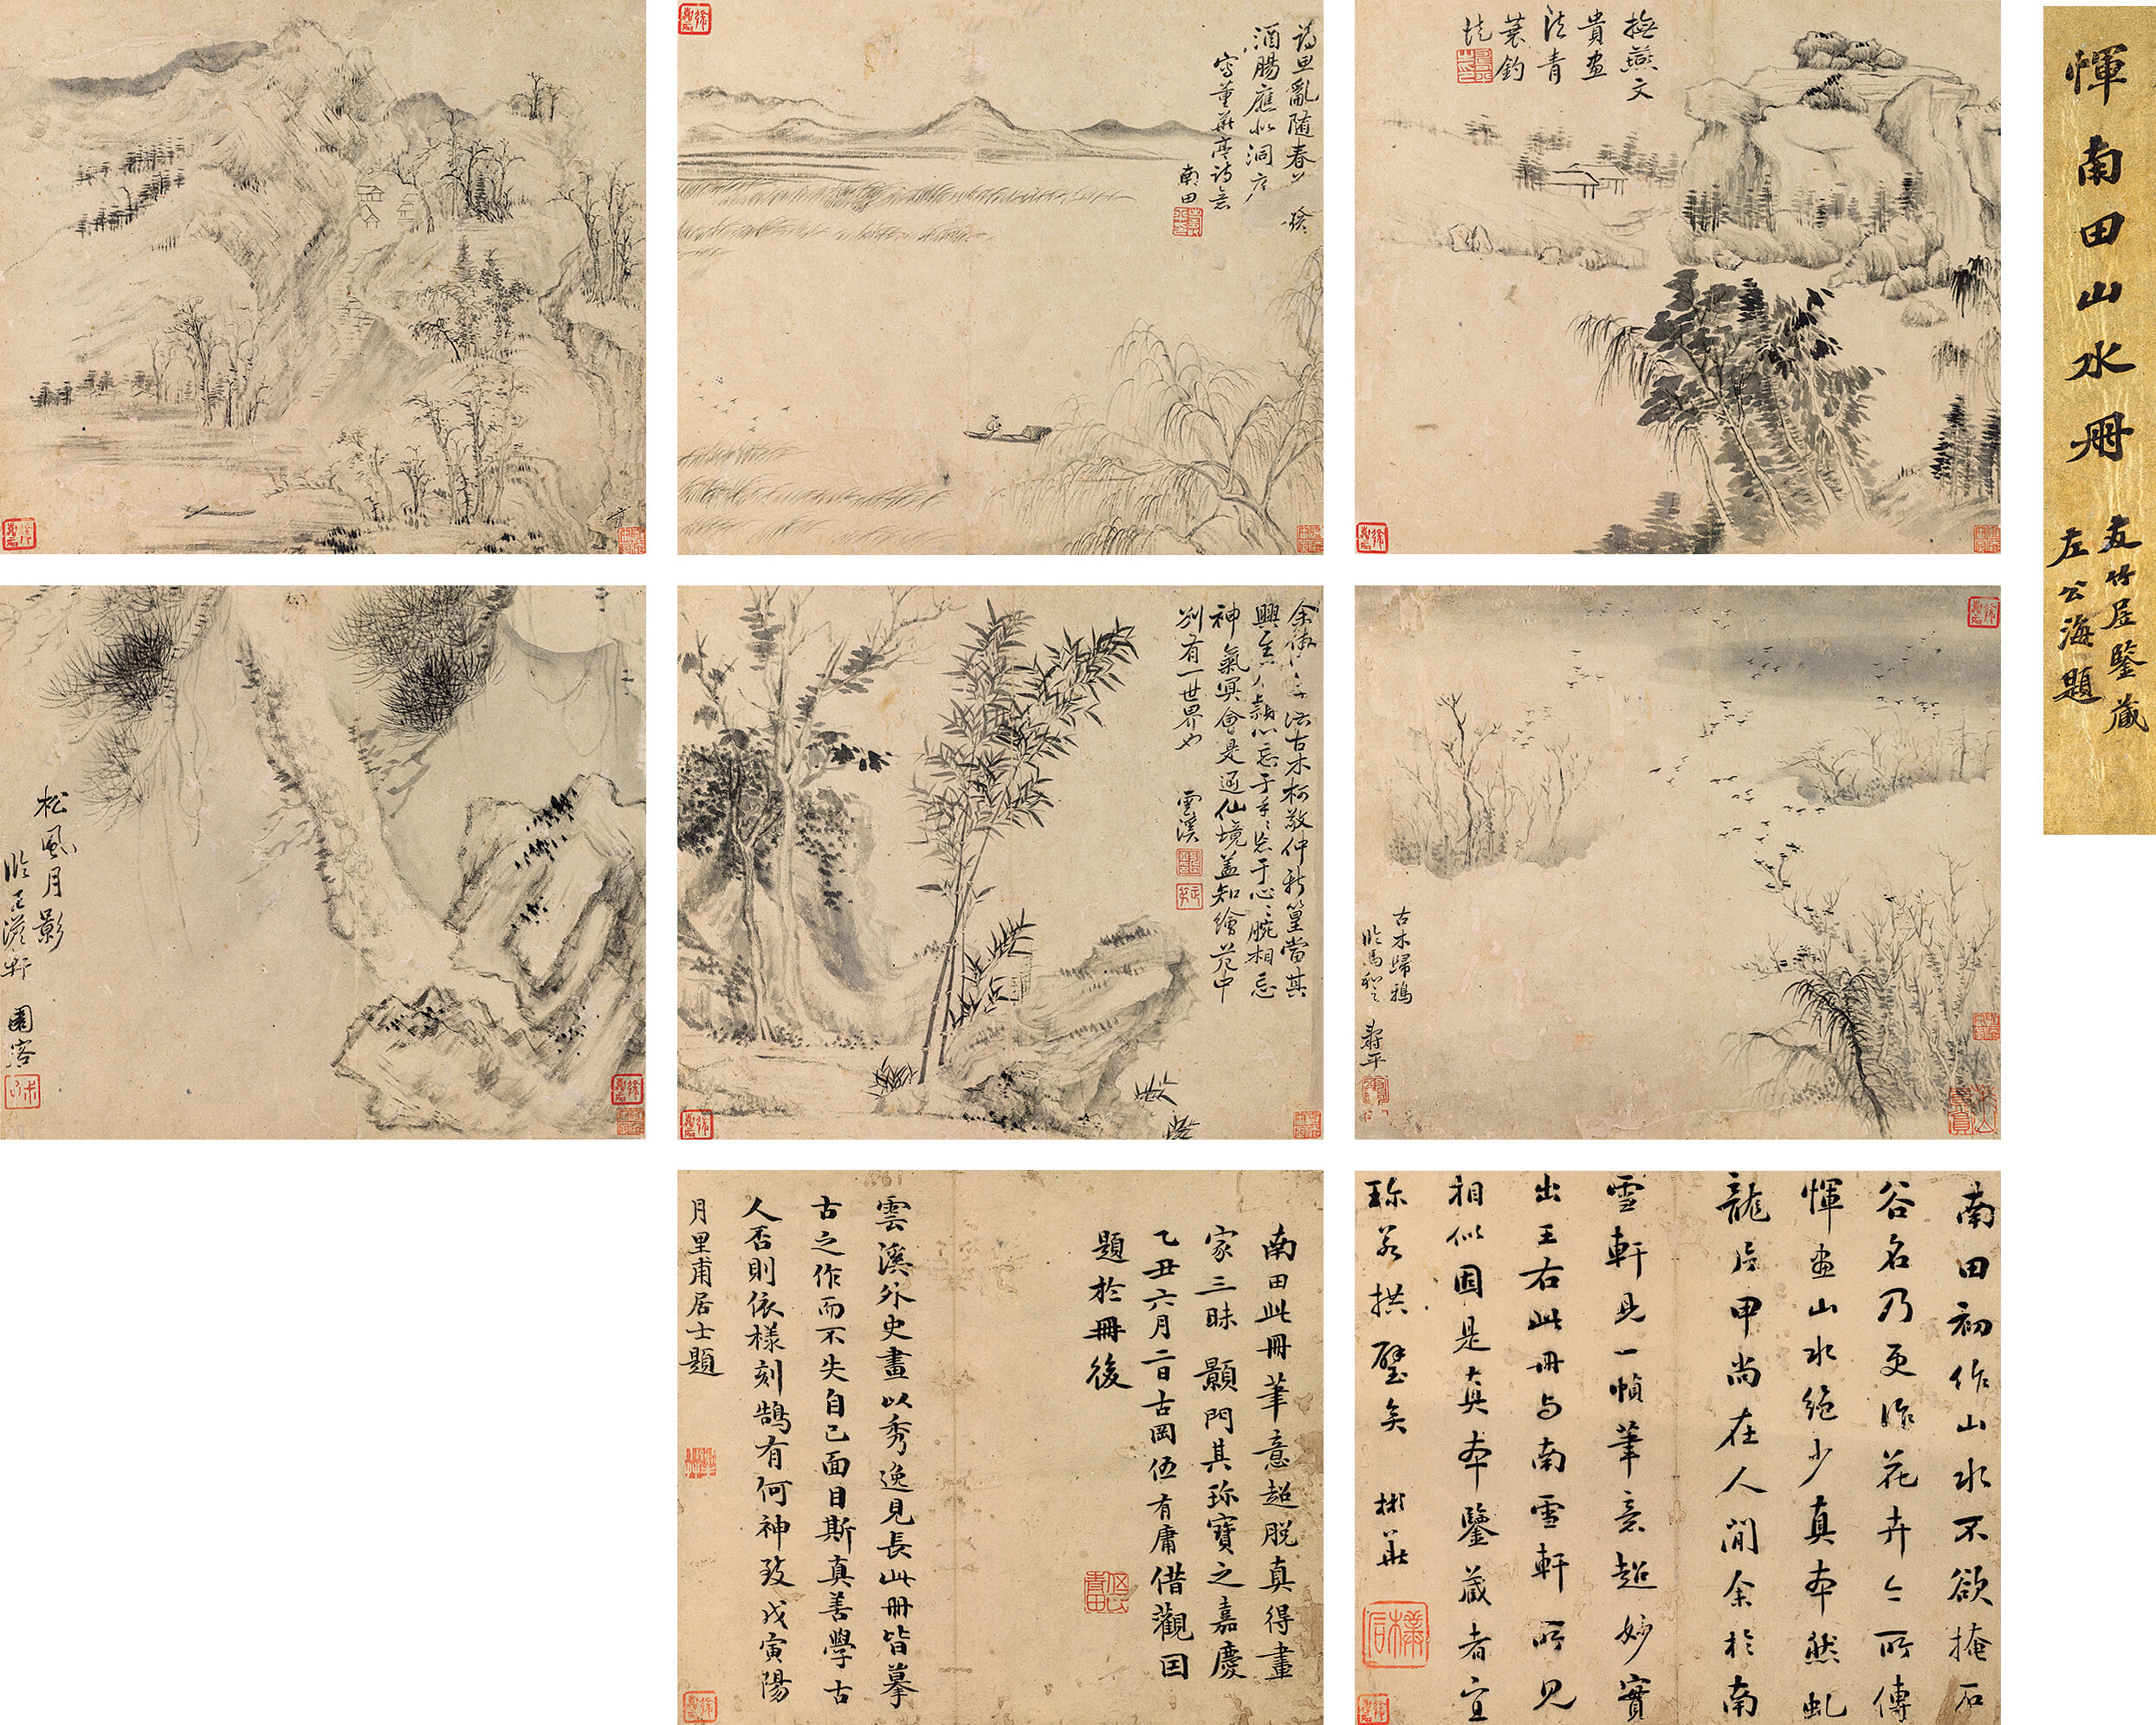 惲南田山水冊
友竹居鑒藏
左公海題
撫燕文
貴畫
法青
蓑釣
詩思亂隨春
酒腸應似洞庭
寫董華亭詩意
南田
古木歸鴉
臨馬和之
壽平
法古木柯敬仲新篁當其
興至
忘于手手忘于心心腕相忘
神氣冥會是通仙境蓋知繪苑中
別有一世界也
雲溪
松風月影
臨王滋軒
園客
南田初作山水不欲掩石
谷名乃更作花卉今所傳
惲畫山水絕少真本然虬
龍片甲尚在人間余於南
雪軒見一幀筆意超妙實
出王右此冊与南雪軒所見
相似固是真本鑒藏者宜
珎若拱璧矣
彬華
南田此冊筆意超脫真得畫
家三昧顥門其珎寶之嘉慶
乙丑六月二日古岡伍有庸借觀因
題於冊後
雲溪外史畫以秀逸見長此冊皆摹
古之作而不失自己面目斯真善學古
人否則依樣刻鵠有何神致戊寅陽
月里甫居士題